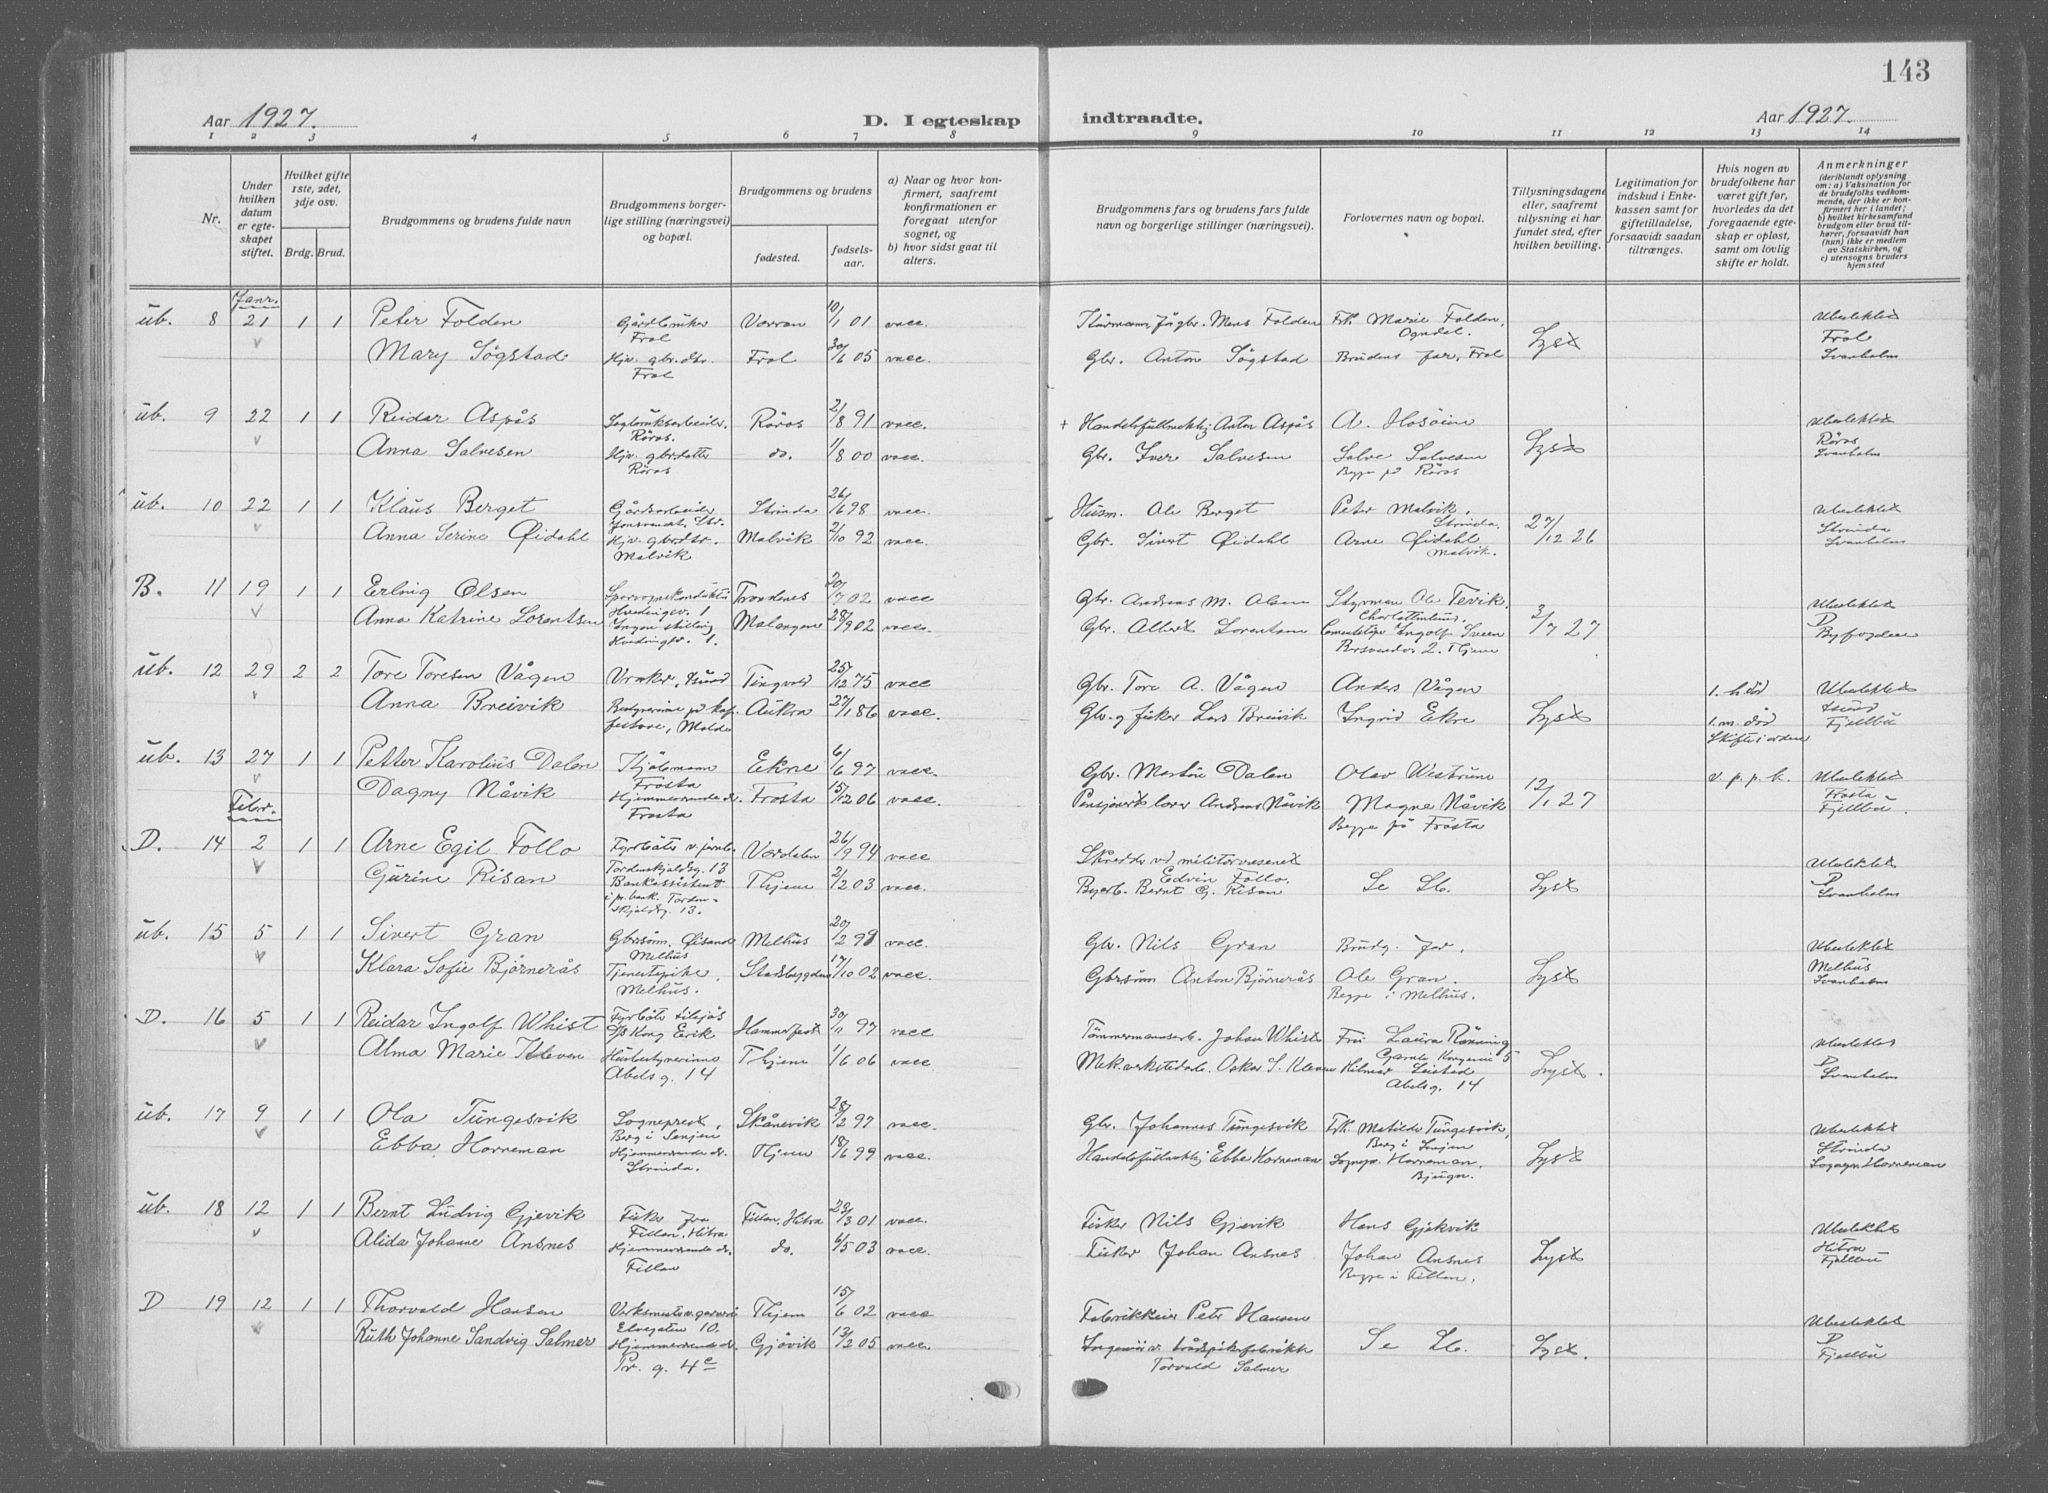 143
Aar 1927.
D. I egteskap indtraadte.
Aar 1927.
1 2 3 4 5 6 7 8 9 10 11 12 13 14
Nr.
Under hvilken datum er egteskapet stiftet.
Hvilket gifte 1ste, 2det, 3dje osv.
Brdg. Brud.
Brudgommens og brudens fulde navn
Brudgommens borgerlige stilling (næringsvei) og bopæl.
Brudgommens og brudens
fødested.
fødselsaar.
a) Naar og hvor konfirmert, saafremt konfirmationen er foregaat utenfor sognet, og
b) hvor sidst gaat til alters.
Brudgommens fars og brudens fars fulde navn og borgerlige stillinger (næringsvei).
Forlovernes navn og bopæl.
Tillysningsdagene eller, saafremt tillysning ei har fundet sted, efter hvilken bevilling.
Legitimation for indskud i Enkekassen samt for giftetilladelse, forsaavidt saadan tiltrænges.
Hvis nogen av brudefolkene har været gift før, hvorledes da det foregaaende egteskap er opløst, samt om lovlig skifte er holdt.
Anmerkninger (deriblandt oplysning om: a) Vaksination for de brudefolks vedkommende, der ikke er konfirmert her i landet; b) hvilket kirkesamfund brudgom eller brud tilhører, forsaavidt han (hun) ikke er medlem av Statskirken, og c) utensogns bruders hjemsted
Janr.
üb. 8 21 1 1 Peter Folden Gårdbruker Frol Vorran 10/1 01 vacc. Mons Folden Frk. Marie Folden, Ogndal. Lyst Ubeslektet Frol Svanholm
Mary Søgstad Hjv. gbr.dtr. Frol Frol 30/6 05 vacc. Gbr. Anton Søgstad Brudens far, Frol
üb. 9 22 1 1 Reidar Aspås Sagbruksarbeider, Röros. Röros 2/8 91 vacc. + Anton Aspås A. Lyst Ubeslektet Röros Svanholm
Anna Salvesen Hjv. gbrdatter Röros do. 1/8 00 vacc. Gbr. Iver Salvesen Salve Salvesen Begge på Röros
üb. 10 22 1 1 Klaus Berget Gårdsarbeider Strinda 26/6 98 vacc. Husm. Ole Berget Peter Malvik, Strinda. 27/12 26 Ubeslektet Strinda Svanholm
Anna Serine Øidahl Hjv. gbrdtr. Malvik Malvik 2/10 92 vacc. Gbr. Sivert Øidahl Arne Øidahl Malvik.
B. 11 19 1 1 Erling Olsen Trondenes 20/7 02 vacc Gbr. Andreas M. Olsen Styrman Ole Tevik, 3/7 27 Ubeslektet D Byfogden
Anna Katrine Lorentsen Ingen stilling 1. Malangen 28/9 02 vacc. Gbr. Albert Lorentsen Ingolf Sveen 2. Thjem
üb. 12 29 2 2 Tore Toresen Vågen Vraker, Tingvold 25/12 75 vacc Gbr. Tore A. Vågen Anders Vågen Lyst 1. h. död Ubeslektet Fjellbu
Anna Breivik Bestyrerinne på Molde Aukra 27/1 86 vacc. Gbr. og fisker Lars Breivik Ingrid Ekre 1. m. död Skifte i orden
üb. 13 27 1 1 Petter Karolius Dalen Frosta Ekne 6/6 97 vacc. Gbr. Martin Dalen Olav Westrum 12/1 27 v. p. p. k. Ubeslektet Frosta Fjellbu.
Dagny Nåvik Hjemmeværende d. Frosta Frosta 15/12 06 vacc. Pensjonert lærer Andreas Nåvik Magne Nåvik Begge på Frosta
Febr.
D. 14 2 1 1 Arne Egil Follo Fyrbøter v. jernb. Tordenskjoldsg. 13 Værdalen 26/9 94 vacc Skredder vd militærvesenet Edvin Follo. Se Lb. Lyst Ubeslektet D Svanholm
Gurine Risan Bankassistent i pr. bank. Tordenskjoldsg. 13. Thjem 2/2 03 vacc. Byarb. Bernt G. Risan
üb. 15 5 1 1 Sivert Gran Gbrsønn, Øisand Melhus Melhus 20/2 98 vacc. Gbr. Nils Gran Brudg. far. Lyst Ubeslektet Melhus Svanholm
Klara Sofie Bjørnerås Tjenestepike, Melhus. Stadsbygden 17/10 02 vacc. Gbrsønn Anton Bjørnerås Ole Gran. Begge i Melhus.
D. 16 5 1 1 Reidar Ingolf Whist Fyrbøter tilsjøs D/S Kong Eirik Hammerfest 30/11 97 vacc Tømmermannsarb. Johan Whist Fru Laura Rønning Gamle Kongevei 5 Lyst. Ubeslektet D Svanholm
Alma Marie Kleven Husbestyrerinne Abelsg. 14 Thjem 1/6 06 vacc. Mek.verkstedarb. Oskar S. Kleven Hilmar Leistad Abelsg. 14
üb. 17 9 1 1 Ola Tungesvik Sogneprest, Berg i Senjen Skånevik 28/2 97 vacc. Gbr. Johannes Tungesvik Frk. Matilde Tungesvik, Berg i Senjen Lyst Ubeslektet Strinda Sognepr. Horneman
Ebba Horneman Hjemmeværende d. Strinda. Thjem 18/6 99 vacc. Handelsfullmektig Ebbe Horneman Sognepr. Horneman. Bjugn.
üb. 18 12 1 1 Bernt Ludvig Gjevik Fisker fra Fillan, Hitra Fillan, Hitra 23/3 01 vacc. Fisker Nils Gjevik Hans Gjekvik Lyst Ubeslektet Hitra Fjellbu
Alida Johanne Ansnes Hjemmeværende d. Fillan do. 6/5 03 vacc. Fisker Johan Ansnes Johan Ansnes Begge i Fillan.
D 19 12 1 1 Thorvald Hansen Verksmester v. garveri Elvegaten 10. Thjem 15/6 02 vacc Fabrikkeier Peter Hansen Se Lb. Lyst. Ubeslektet D Fjellbu
Ruth Johanne Sandvig Salmer Hjemmeværende d. Pr. g. 4c Gjøvik 13/2 05 vacc. Torvald Salmer